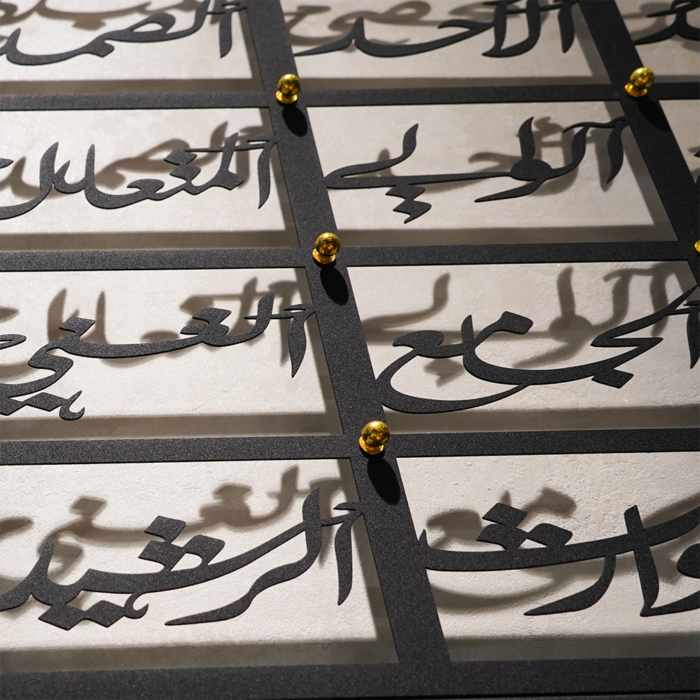 الأحد الصمد
الوالي المتعال
الجامع الغني
وارث الرشيد